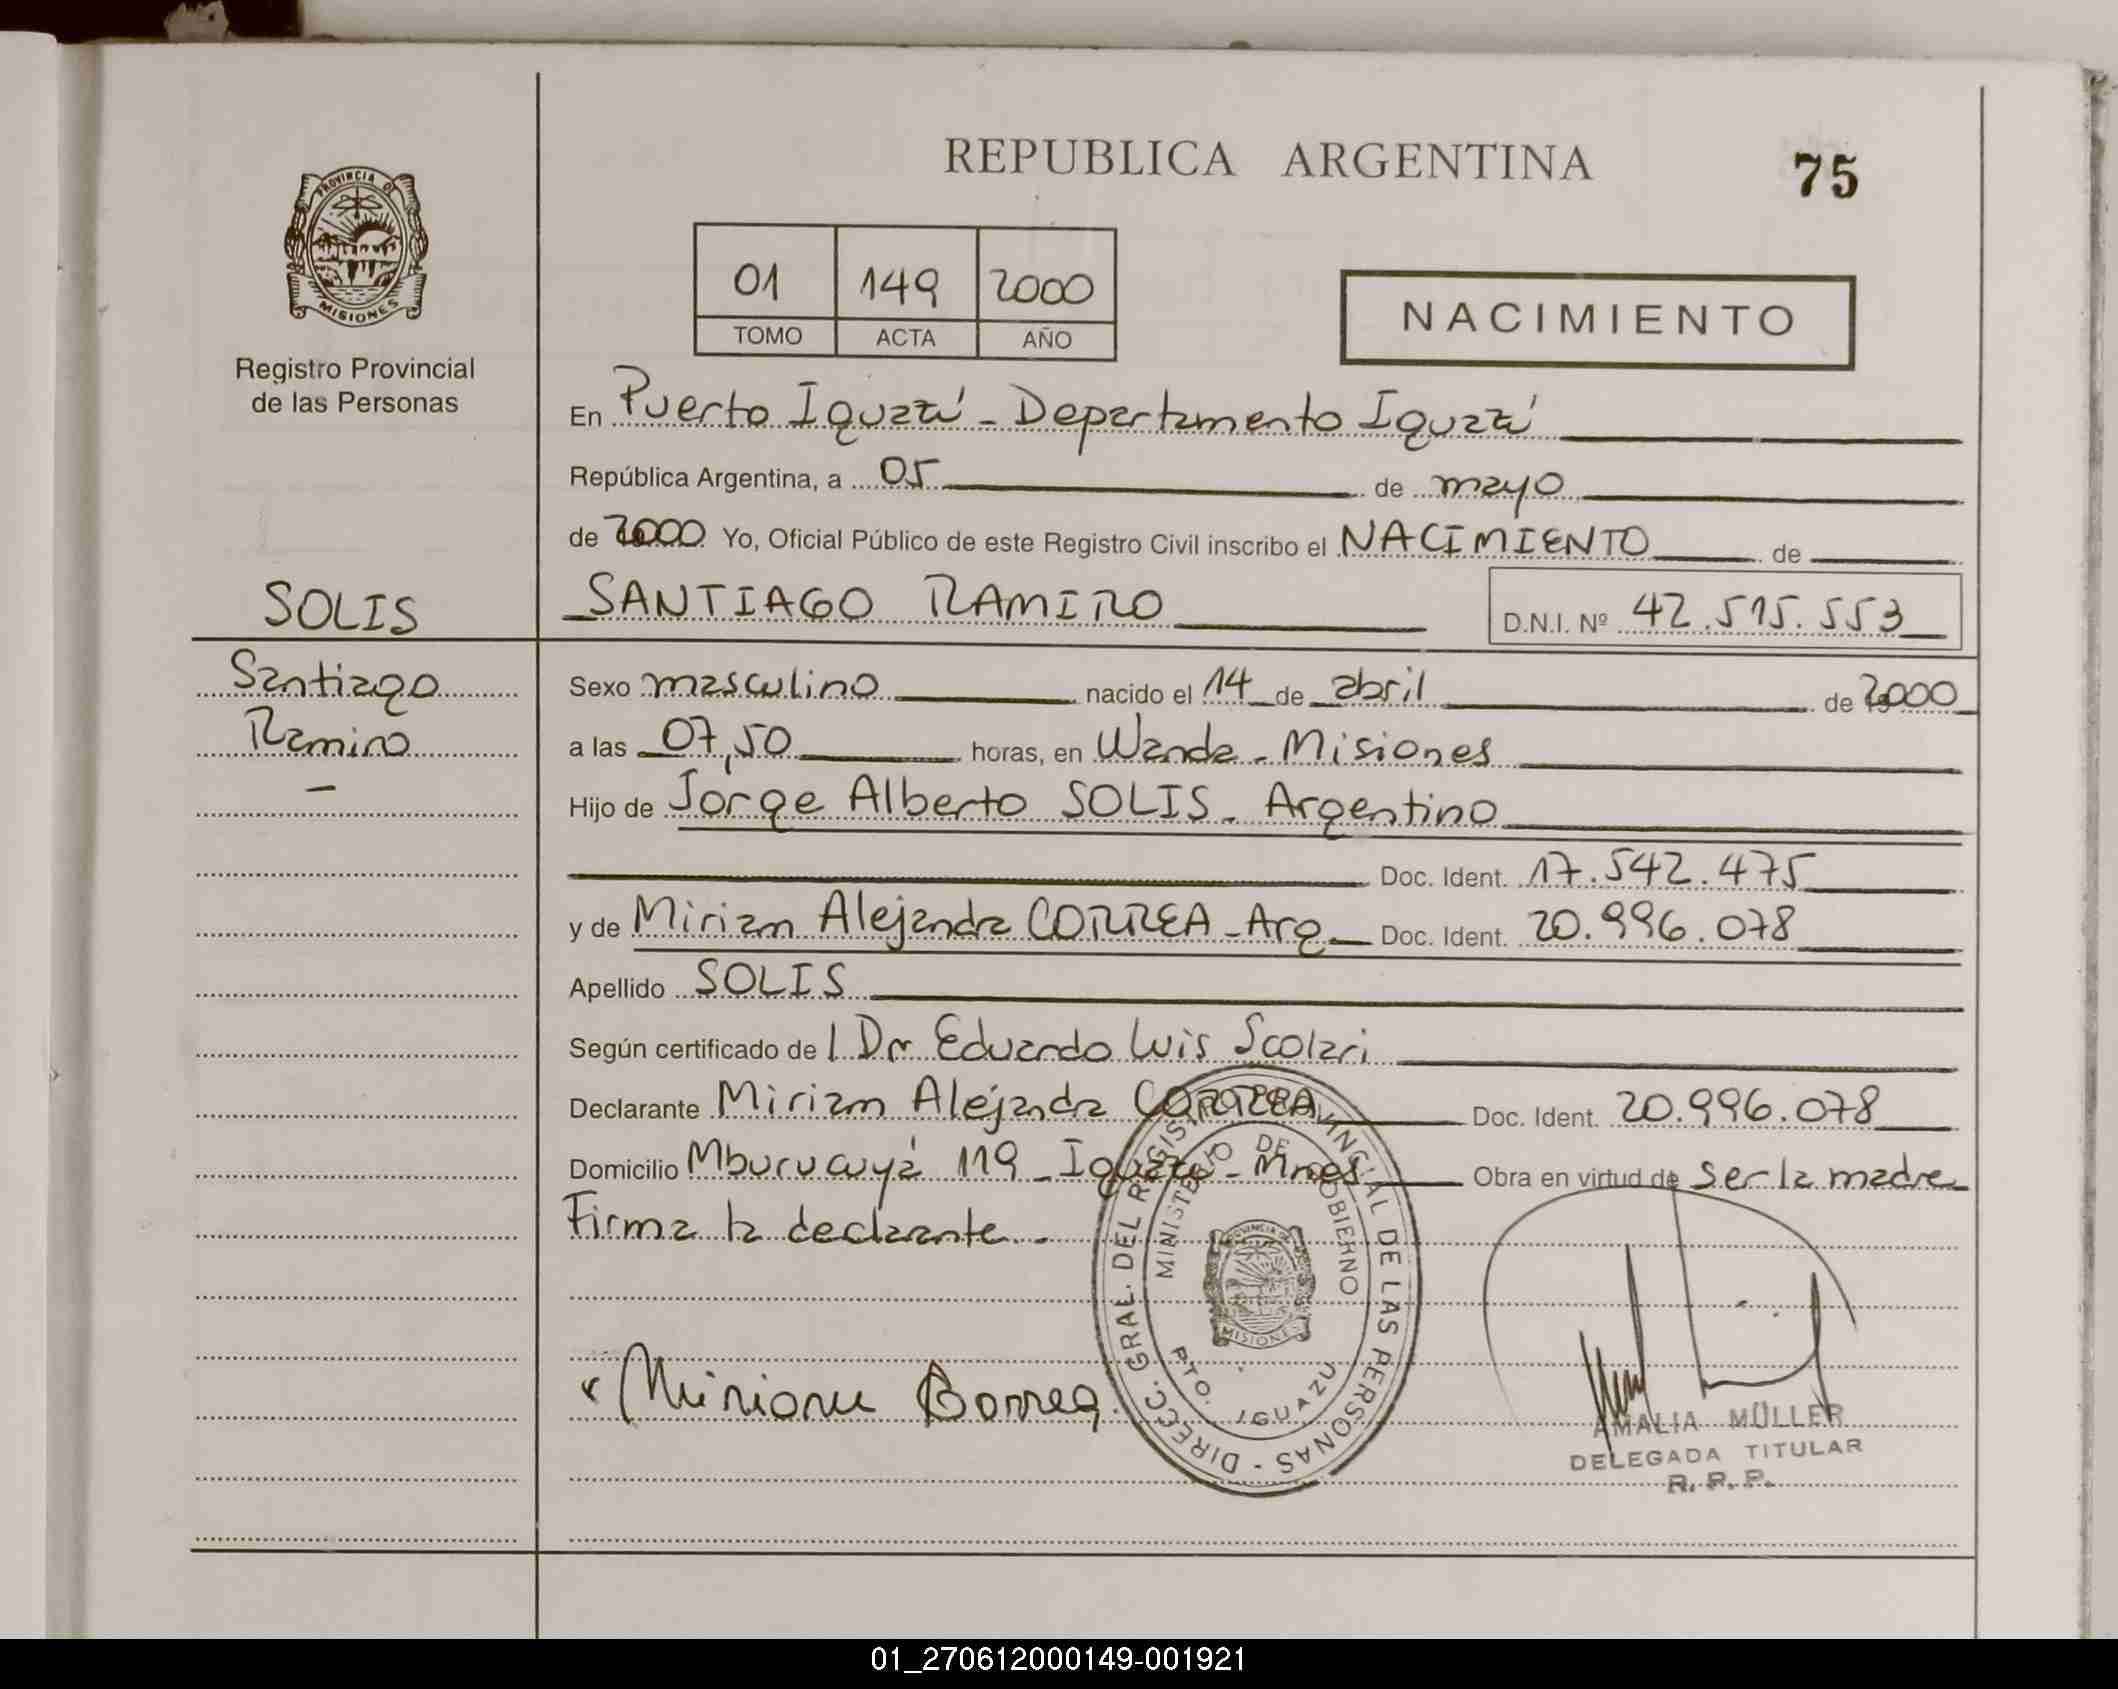 REPUBLICA ARGENTINA
75
PROVINCIA DE
MISIONES
Registro Provincial
de las Personas
01 149 2000
TOMO ACTA AÑO
NACIMIENTO
En Puerto Iguazú - Departamento Iguazú
República Argentina, a 05 de mayo
de 2000 Yo, Oficial Público de este Registro Civil inscribo el NACIMIENTO de
SANTIAGO RAMIRO
D.N.I. Nº 42.515.553
SOLIS
Santiago
Ramiro
-
Sexo masculino nacido el 14 de abril de 2000
a las 07,50 horas, en Wanda - Misiones
Hijo de Jorge Alberto SOLIS - Argentino
Doc. Ident. 17.542.475
y de Miriam Alejandra CORREA - Arg Doc. Ident. 20.996.078
Apellido SOLIS
Según certificado de l Dr Eduardo Luis Scolari
Declarante Miriam Alejandra CORREA Doc. Ident. 20.996.078
Domicilio Mburucuyá 119 - Iguazú - Mnes Obra en virtud de ser la madre
Firma la declarante -
DIRECC. GRAL. DEL REGISTRO PROVINCIAL DE LAS PERSONAS -
MINISTERIO DE GOBIERNO
PROVINCIA DE
MISIONES
PTO. IGUAZU
Miriam Correa
AMALIA MÜLLER
DELEGADA TITULAR
R. P. P.
01_270612000149-001921